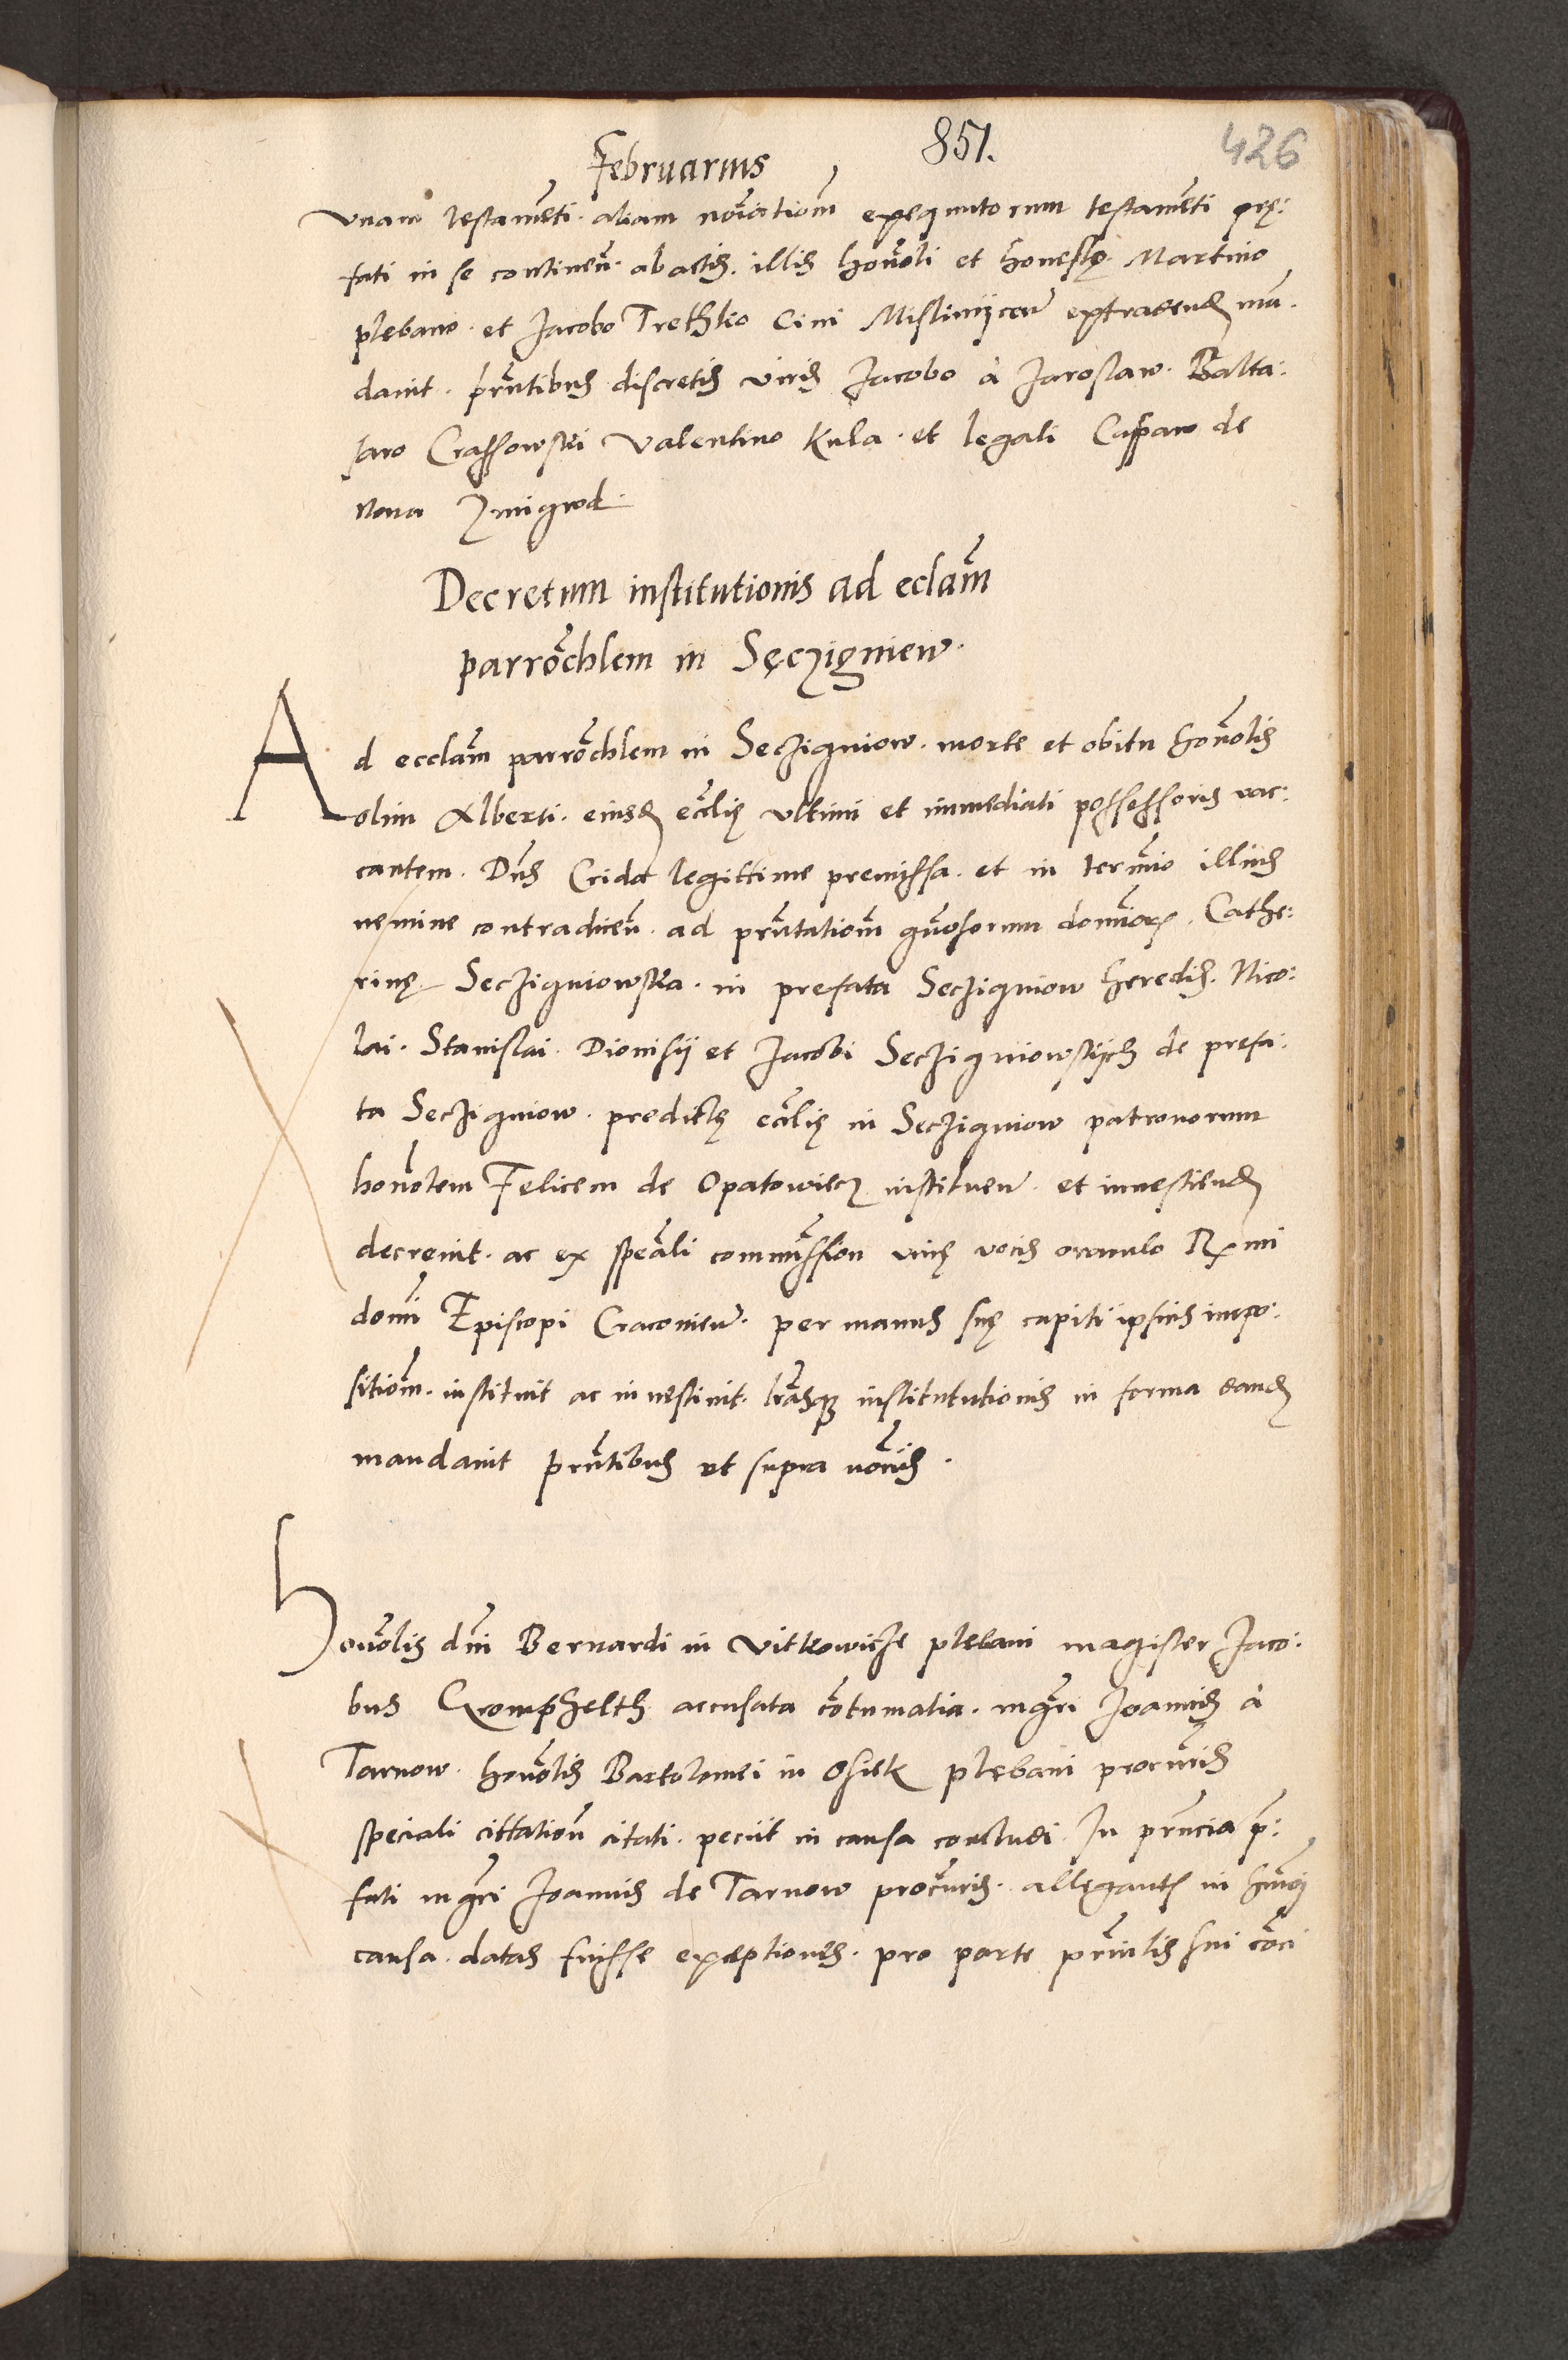 Februarius 851. 426
vnam testamēti. aliam noīationm exequutorum testamēti prę:
fati in se continen. ab actis. illis honoli et honestę. Martino
plebano. et Jacobo Trethlio Civi Misliniicen extradend man:
davit. pntibus discretis viris Jacobo à Jaroslaw. Balta:
saro Crassowski Valentino Kula. et legali Casparo de
nova Zmigrod.
Decretum institutionis ad eclam
parrochlem in Sęczigniew.
Ad ecclam parrochlem in Seczigniow. morte et obitu honolis
olim Alberti. eiusd ecclię vltimi et immediati possessoris vac:
cantem. Dns Crida legittime premissa. et in termio illius
nemine contradicen. ad pntationm gnosorum domior. Cathe:
rinę Seczigniowska. in prefata Seczigniow heredis. Nico:
lai. Stanislai. Dionisii et Jacobi Seczigniowskych de prefa:
ta Secziguiow. predictę ecclię in Secziguiow patronorum
honolem Felicem de Opatowiecz instituen. et investiend
decrevit. ac ex speali commission vivę vocis oraculo Rmi
domi Episcopi Cracovien. per manus suę capiti ipsius impo:
sitionm. instituit ac investivit. lrasq institututionis in forma dand
mandavit pntibus vt supra nōnis.
Honolis dni Bernardi in Vitkowicze plebani magister Jaco:
bus Gromphelth accusata cōtumatia. mgri Joannis à
Tarnow. honolis Bartolomei in Osiek plębani procuris
speciali cittation citati. peciit in causa concludi. In pntia p:
fati mgri Joannis de Tarnow procuris. allęgants in hmoi
causa. datas fuisse exceptiones. pro parte prncilis sui cōci